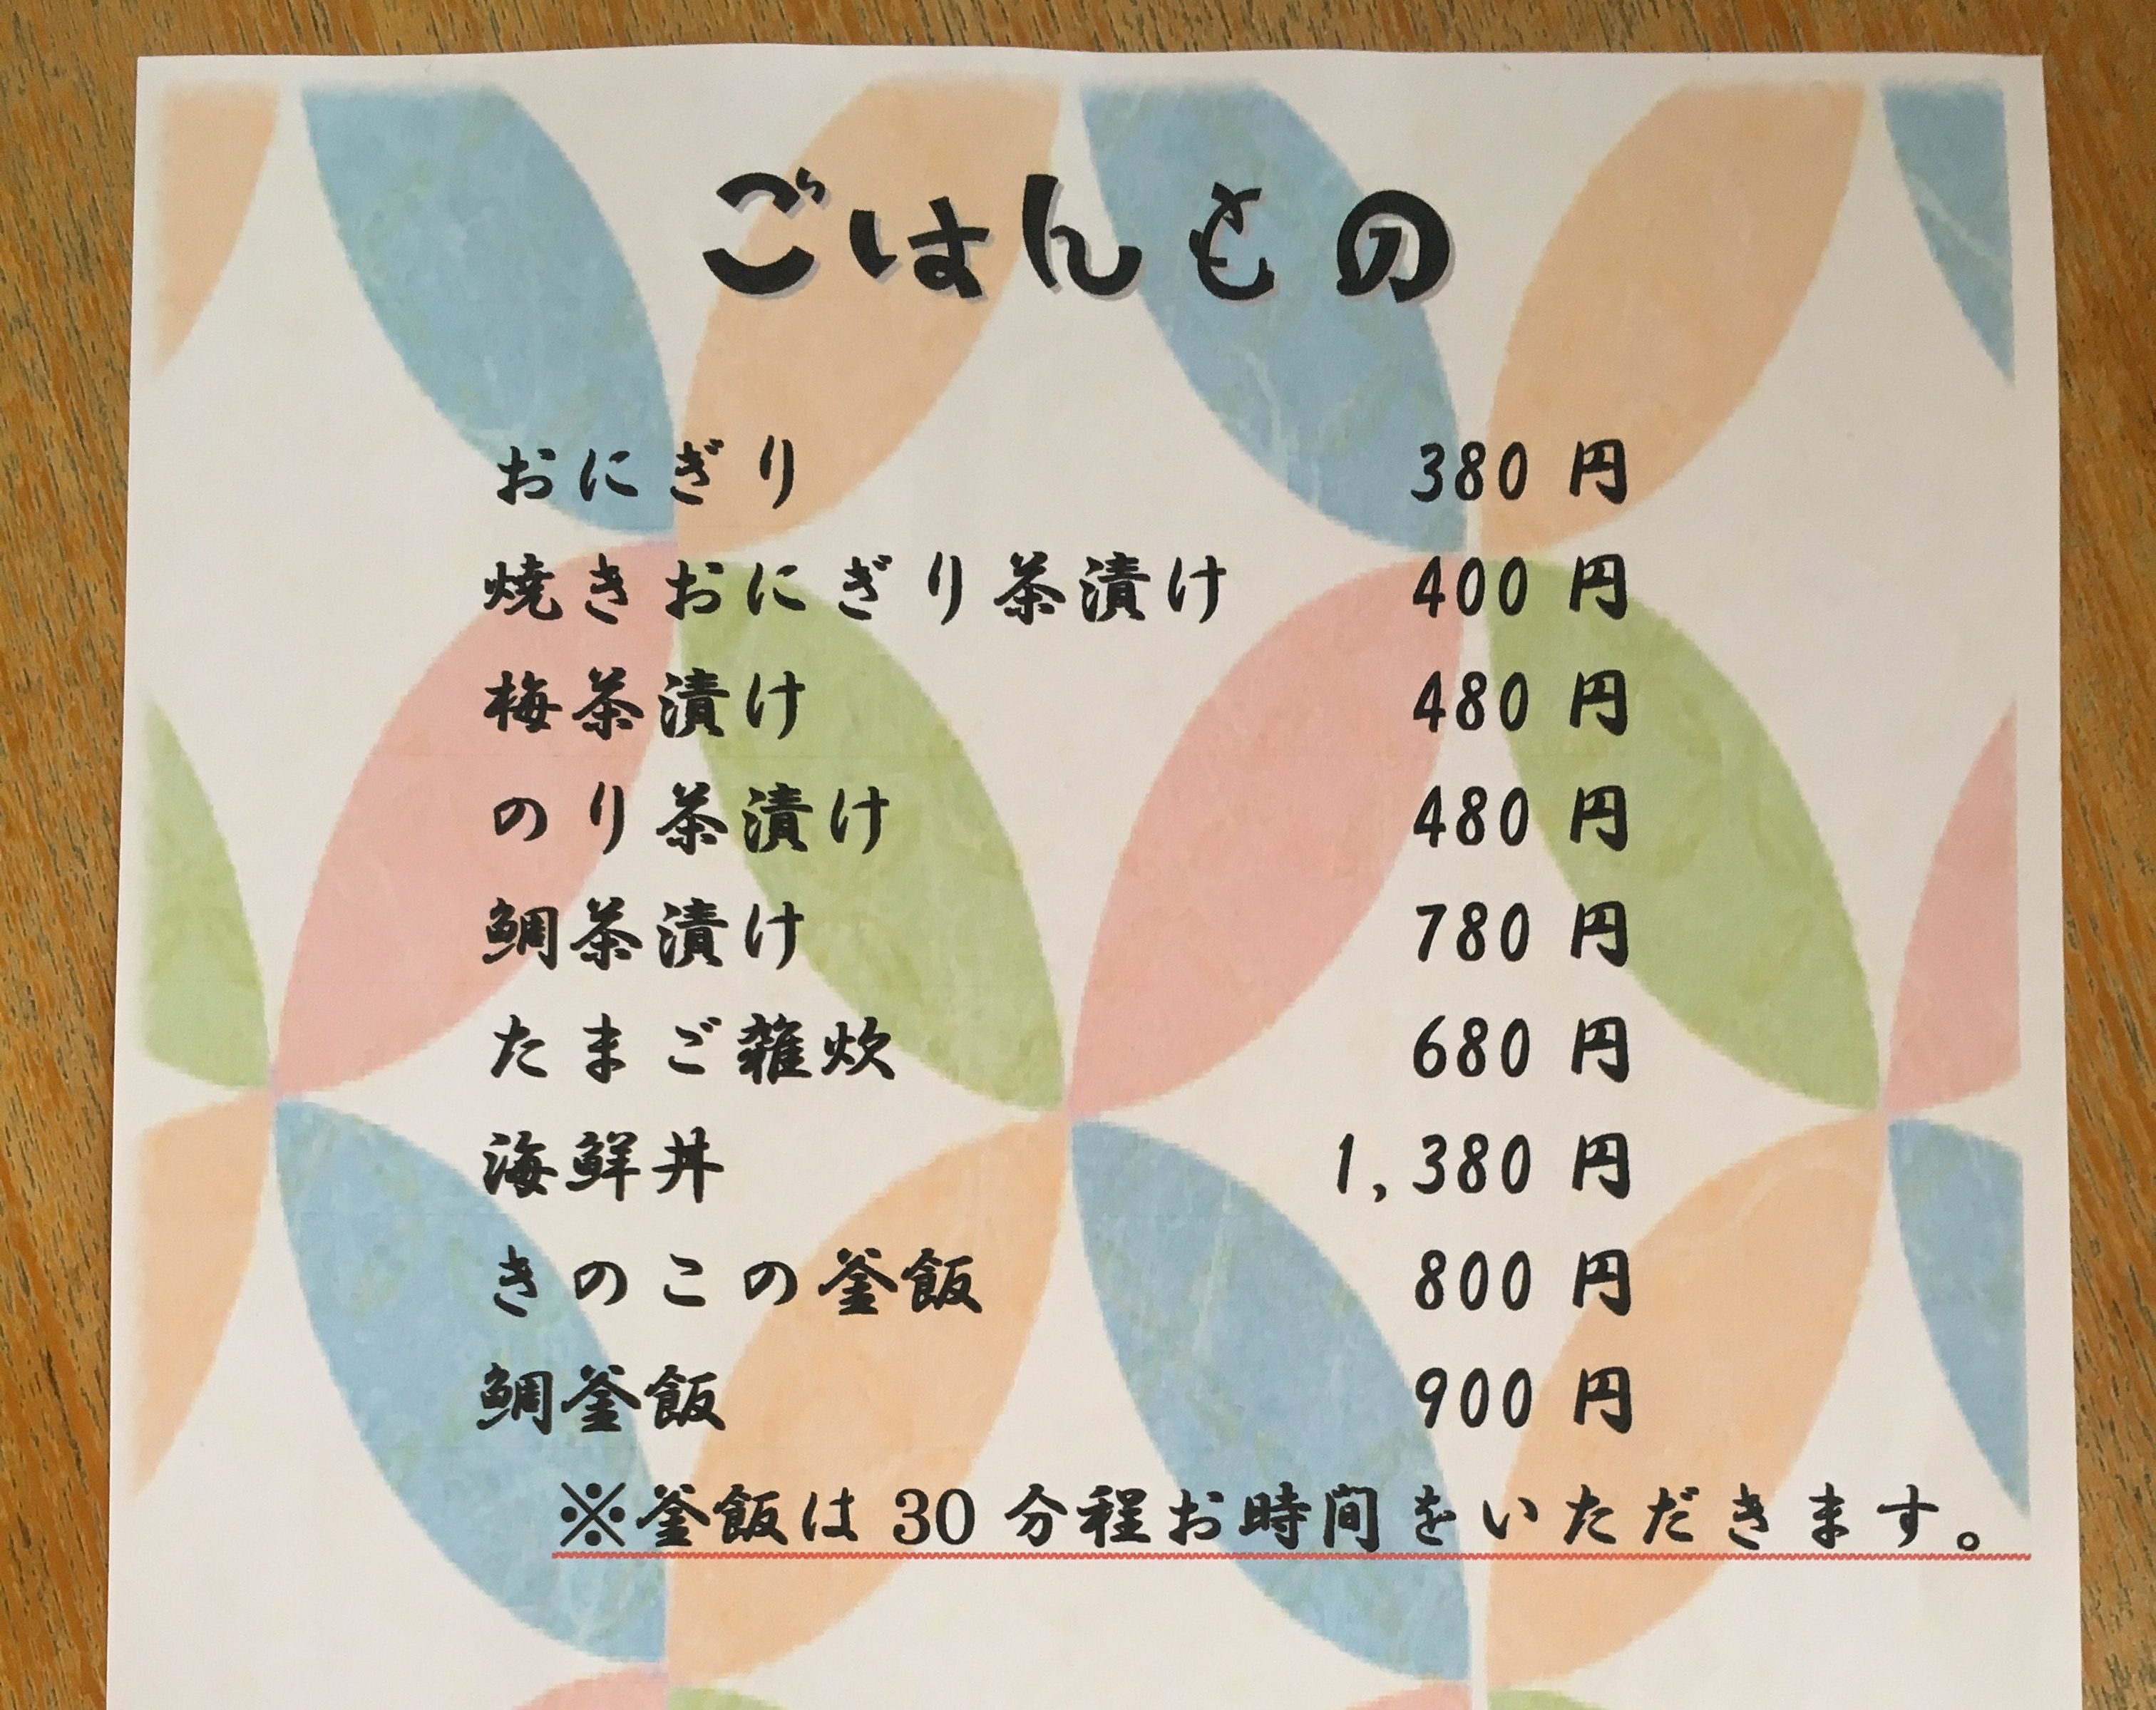 ごはんもの
おにぎり 380 円
焼きおにぎり茶漬け 400 円
梅茶漬け 480 円
のり茶漬け 480 円
鯛茶漬け 780 円
たまご雑炊 680 円
海鮮丼 1,380 円
きのこの釜飯 800 円
鯛釜飯 900 円
※釜飯は 30 分程お時間をいただきます。